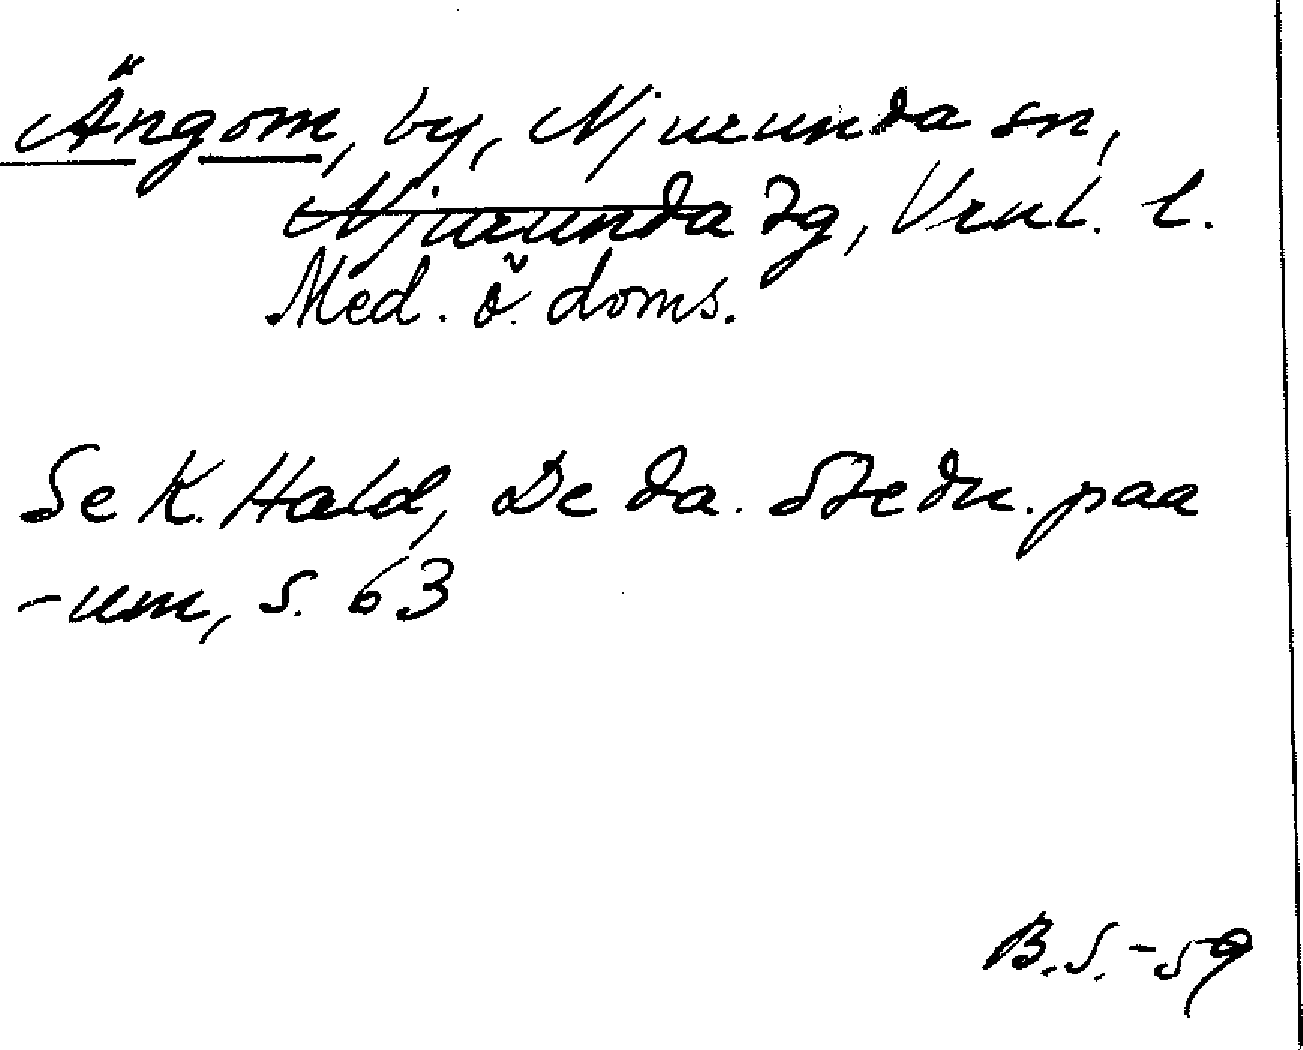 Ängom, by, Njurunda sn,
Njurunda tg, Vrnl. l.
Med. ö. doms.
Se K. Hald, De da. Stedn. paa
-um, s. 63
B.S. -59